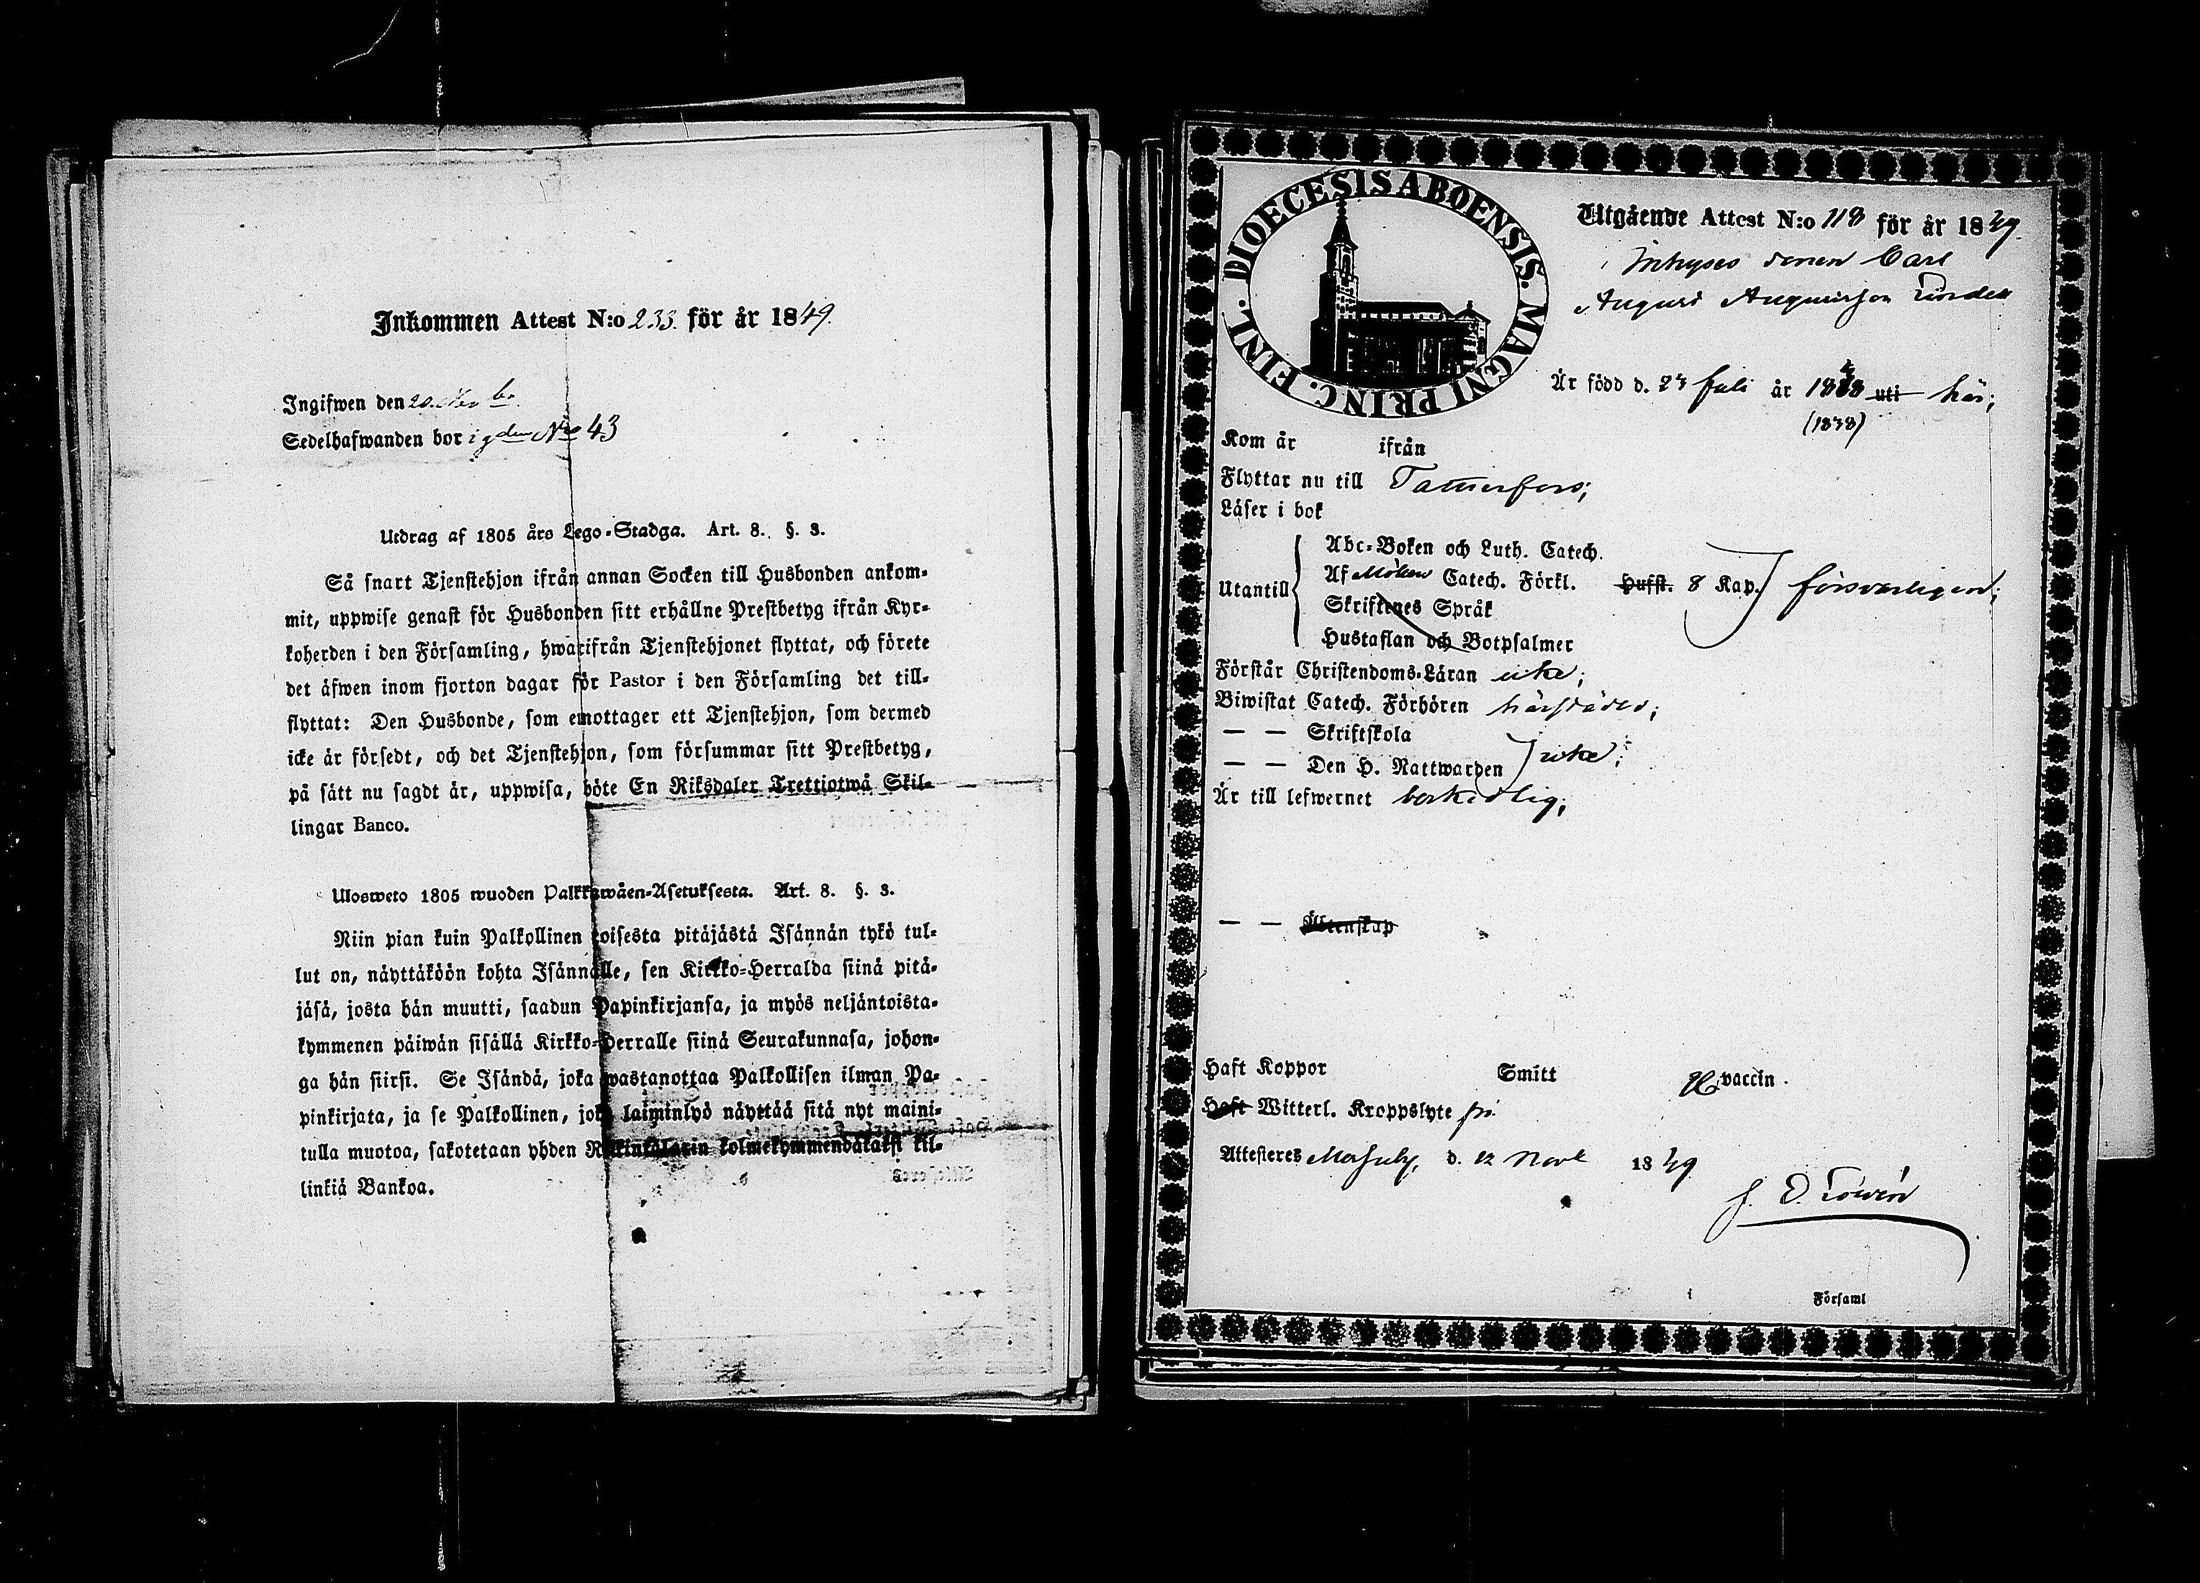 Inkommen Attest N:o 233. för år 1849.
Ingifwen den 20. Nov br
Sedelhafwanden bor i gden No 43
Utdrag af 1805 års Lego-Stadga. Art. 8. §. 3.
Så snart Tjenstehjon ifrån annan Socken till Husbonden ankom-
mit, uppwise genast för Husbonden sitt erhållne Prestbetyg ifrån Kyr-
koherden i den Församling, hwarifrån Tjenstehjonet flyttat, och förete
det äfwen inom fjorton dagar för Pastor i den Församling det till-
flyttat: Den Husbonde, som emottager ett Tjenstehjon, som dermed
icke är försedt, och det Tjenstehjon, som försummar sitt Prestbetyg,
på sätt nu sagdt är, uppwisa, böte En Riksdaler Trettiotwå Skil-
lingar Banco.
Ulosweto 1805 wuoden Palkkawäen-Asetuksesta. Art. 8. §. 3.
Niin pian kuin Palkollinen toisesta pitäjästä Isännän tykö tul-
lut on, näyttäköön kohta Isännälle, sen Kirkko-Herralda siinä pitä-
jäsä, josta hän muutti, saadun Papinkirjansa, ja myös neljäntoista-
kymmenen päiwän sisällä Kirkko-Herralle siinä Seurakunnasa, johon-
ga hän siirsi. Se Isändä, joka wastanottaa Palkollisen ilman Pa-
pinkirjata, ja se Palkollinen, joka laiminlyö näyttää sitä nyt maini-
tulla muotoa, sakotetaan yhden Riikintalarin kolmekymmendäkaksi kil-
linkiä Bankoa.
DIOECESIS ABOENSIS. MAGNI PRINC. FINL.
Utgående Attest N:o 118 för år 1849.
Inhyses sonen Carl
August Augustsson
Är född d. 23 Juli år 1838 uti här;
(1838)
Kom år ifrån
Flyttar nu till Tammerfors;
Läser i bok
Utantill
Abc-Boken och Luth. Catech.
Af Möllers Catech. Förkl. Hufst. 8 Kap. försvarligen;
Skriftenes Språk
Hustaflan och Botpsalmer
Förstår Christendoms-Läran icke;
Biwistat Catech. Förhören härstädes;
— — Skriftskola
— — Den H. Nattwarden icke;
Är till lefwernet beskedlig;
— — Äktenskap
Haft Koppor Smitt vaccin.
Haft Witterl. Kroppslyte fri
Attesteres d. 12 Novb 1849
Församl